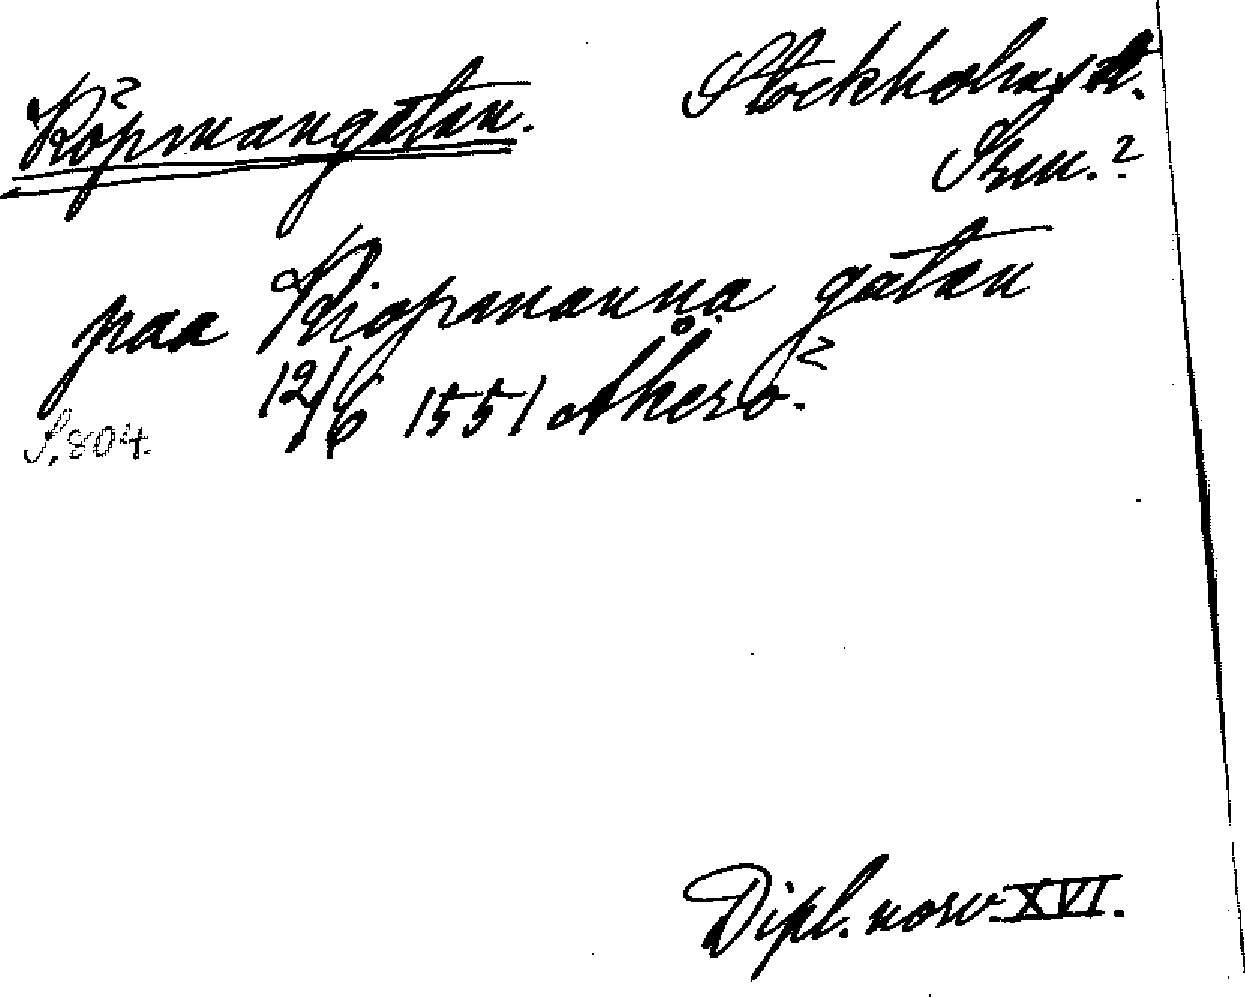 Köpmangatan.
Stockholms st.
Srm.?
paa Kiopmanna gatan
12/6 1551 Åkerö.
S. 804.
Dipl. norv. XVI.